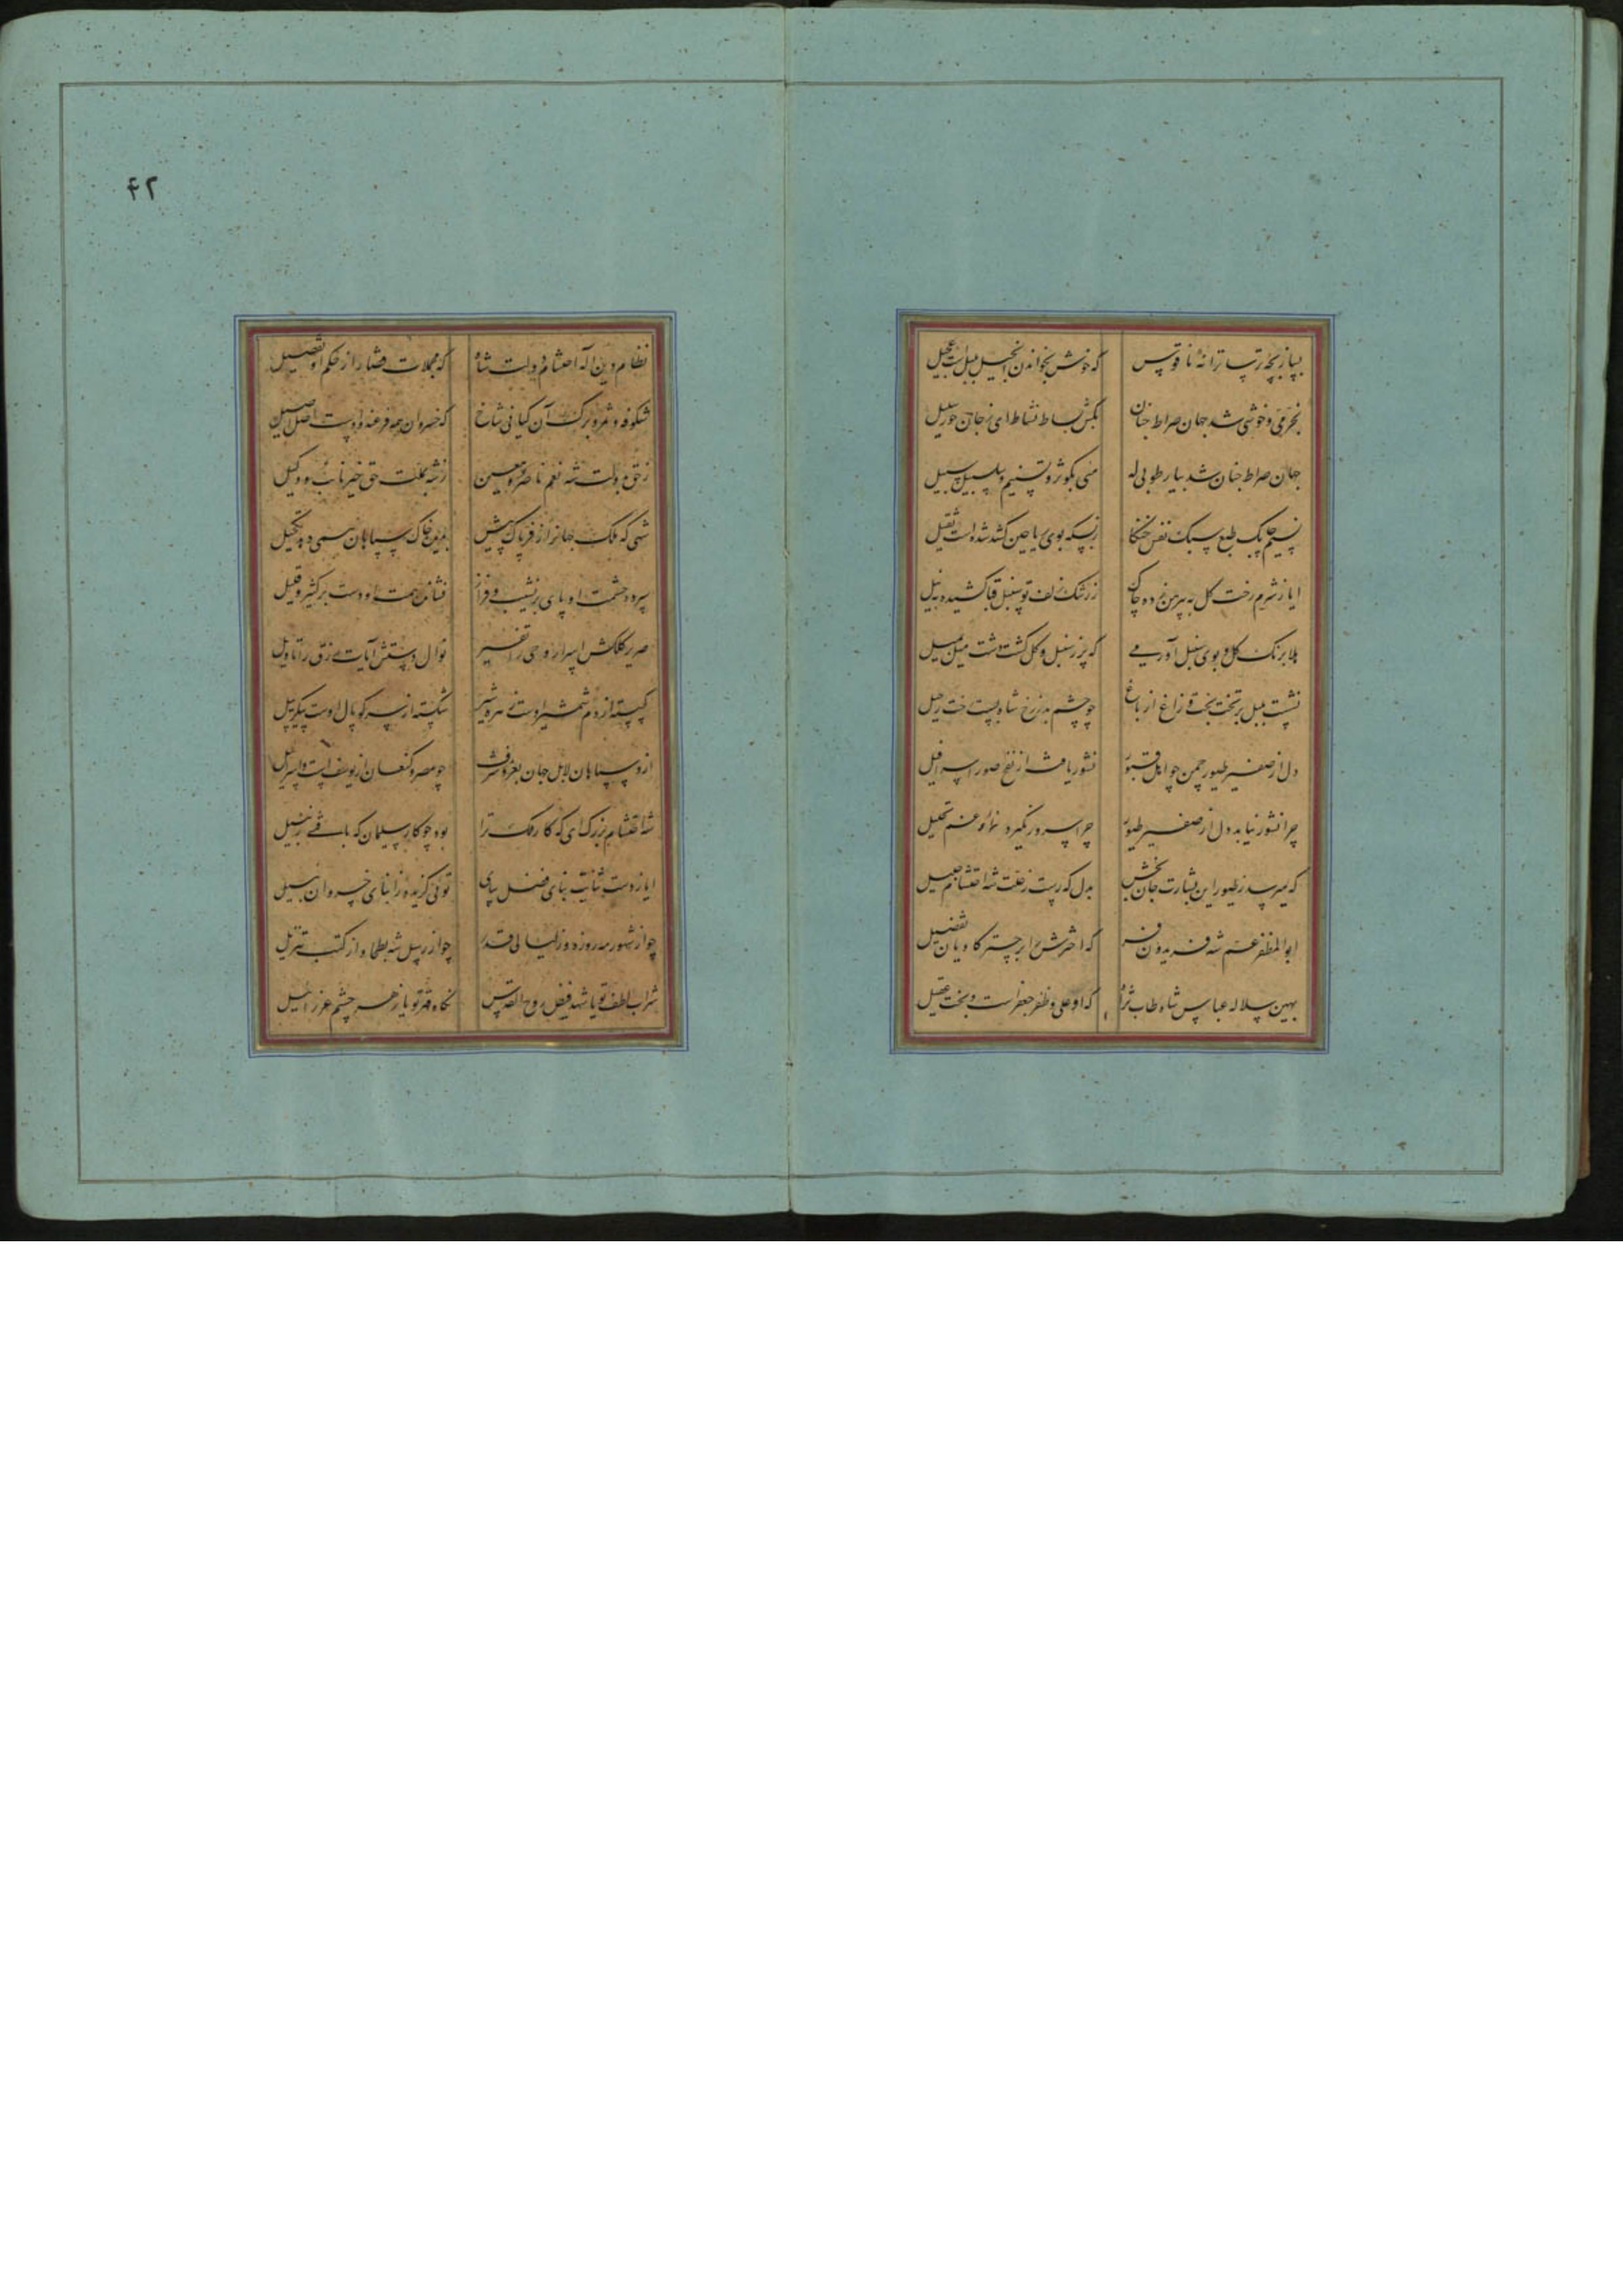 بساز بچه ترسا ترانهٔ ناقوس که خوش بخواندن انجیل بلبل است عجیل
بخرمی و خوشی شد جهان صراط جنان بکش بساط نشاط ای زجان حور سبیل
جهان صراط جنان شد بیار طوبی له می بکوثر و تسنیم و سلسبیل سبیل
نسیم چابک طبع سبک نفس زبسکه بوی ریاحین کشد شده است ثقیل
ایا ز شرم رخت کل به پیرهن زده چاک ز رشک زلف تو سنبل قبا کشیده بنیل
هلا برنک کل و بوی سنبل آور می که پر ز سنبل و کل کشت دشت میل میل
نشست بلبل بر تخت بخت و زاغ از باغ چو چشم بد ز رخ شاه بست رخت رحیل
دل از صفیر طیور چمن چو اهل قبور نشور یافت از نفخ صور اسرافیل
چرا نشور نیابد دل از صفیر طیور چرا سرور نکیرد نهاد و غم تحلیل
که میرسد ز طیور این بشارت جان بخش بدل که رست ز علت شه احتشام جلیل
ابوالمظفر عم شه فریدون فر که اخترش را بر چتر کاویان تفضیل
بهین سلاله عباس شاه طاب ثراه که او علی و ظفر جعفر است و بخت عقیل
۴۲
نظام دین اله احتشام دولت شاه که مجملات قضا را ز حکم او تفصیل
شکوفه و ثمر و برک آن کیانی شاخ که خسروان همه فرعند و اوست اصل اصیل
ز حق بدولت شه نعم ناصر و معین ز شه بملت حق خیر نائب و وکیل
شهی که ملک جهانرا ز فر پاک پیش بدین خاک سپاهان همی دهد تحیل
سپرده حشمت او پای بر نشیب و فراز فشانده همت او دست بر کثیر و قلیل
صریر کلکش اسرار وحی را تفسیر نوال دستش آیات رزق را تاویل
کسسته از دم شمشیر اوست زهره شیر شکسته از سر کوپال اوست پیکر پیل
ازو سپاهان لابل جهان بعز و شرف چو مصر و کنعان از یوسف است و اسرائیل
شه احتشام بزرک ای که کار ملک ترا بود چو کار سلیمان که بافتی زنبیل
ایا ز دست ثنایت بنای فضل بپای توئی کزیده ز ابنای خسروان نبیل
چو از شهور مه روزه و ز لیالی قدر چو از رسل شه بطحا و از کتب تنزیل
شراب لطف تو یا شهد فیض روح القدس نکاه قهر تو یا زهر چشم عزرائیل